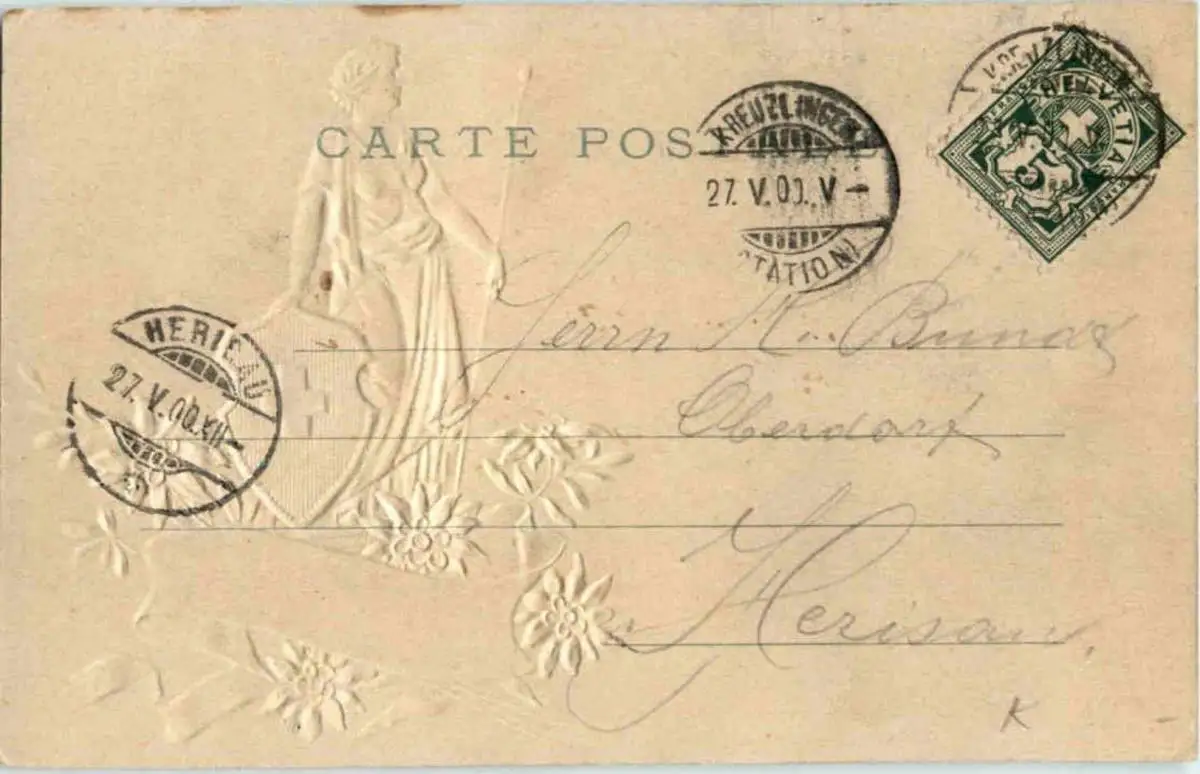 CARTE POSTALE
KREUZLINGEN
27. V. 00. V–
STATION
KREUZLINGEN
HELVETIA
5
HERISAU
27. V. 00. XII–
Herrn K. Bundz
Oberdorf
Herisau
K